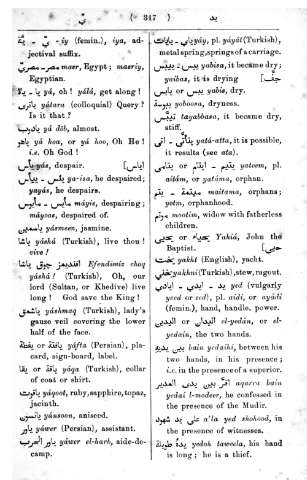 ىّ ( 347 ) يد
ىّ - يّ -iy (femin.), iya, adjectival suffix.
مصر - مصريّ maer, Egypt; maeriy, Egyptian.
يا - يلا yá, oh! yálá, get along!
ياترى yátara (colloquial) Query? Is it that?
يادوب yá dôb, almost.
ياهو yá hoo, or yá hoo, Oh He! i.e. Oh God!
يأس yás, despair.
يئس - ييأس ya-isa, he despaired; yayás, he despairs.
مأيس - مأيوس máyis, despairing; máyoos, despaired of.
ياسمين yásmeen, jasmine.
ياشا yáshá (Turkish), live thou! vive!
افنديمز چوق ياشا Efendimiz choq yáshá! (Turkish), Oh, our lord (Sultan, or Khedive) live long! God save the King!
ياشمق yáshmaq (Turkish), lady's gauze veil covering the lower half of the face.
يافتة or يفطة yáfta (Persian), placard, sign-board, label.
ياقة or يقا yáqa (Turkish), collar of coat or shirt.
ياقوت yáqoot, ruby, sapphire, topaz, jacinth.
يانسون yánsoon, aniseed.
ياور yáwer (Persian), assistant.
ياور الحرب yáwer el-harb, aide-de-camp.
يايات - ياي yáy, pl. yáyát (Turkish), metal spring, springs of a carriage.
يبس - ييبس yabisa, it became dry; yaibas, it is drying
يابس or يبس yabis, dry.
يبوسة yaboosa, dryness.
تيبّس tayabbasa, it became dry, stiff.
يتأتّى - أتى yatá-atta, it is possible, it results (see ata).
يتيم - ايتام or يتامى yateem, pl. aitám, or yatáma, orphan.
ميتمة - يتم maitama, orphans; yetm, orphanhood.
موتم mootim, widow with fatherless children.
يحياء or يحيى Yahiá, John the Baptist.
يخت yakht (English), yacht.
يخني yakhni (Turkish), stew, ragout.
يد - ايدي - ايادي yed (vulgarly yeed or eed), pl. aidi, or ayádi (femin.), hand, handle, power.
اليدان or اليدين el-yedán, or el-yedain, the two hands.
بين يديه bain yedaihi, between his two hands, in his presence; i.e. in the presence of a superior.
اقرّ بين يدي المدير aqarra bain yedai l-modeer, he confessed in the presence of the Mudir.
على يد شهود a'la yed shohood, in the presence of witnesses.
يده طويلة yedoh taweela, his hand is long; he is a thief.